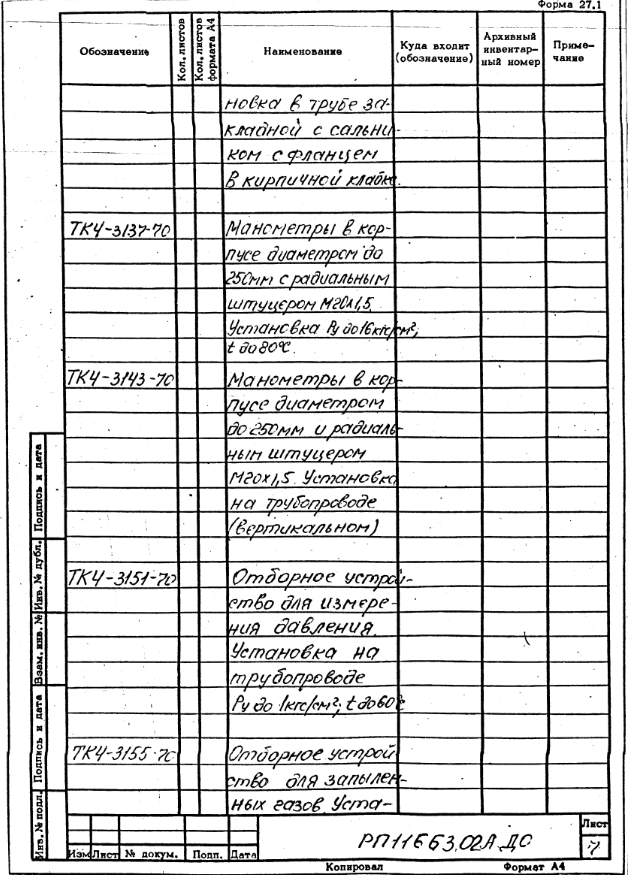 Форма 27.1
Обозначение Кол. листов Кол. листов формата А4 Наименование Куда входит (обозначение) Архивный инвентарный номер Примечание
новка в трубе за-
кладной с сальни-
ком с фланцем
в кирпичной кладке.
ТК4-3137-70 Манометры в кор-
пусе диаметром до
250мм с радиальным
штуцером М20х1,5.
Установка Ру до 16 кгс/см²;
t до 80°С.
ТК4-3143-70 Манометры в кор-
пусе диаметром
до 250мм и радиаль-
ным штуцером
М20х1,5. Установка
на трубопроводе
(вертикальном)
ТК4-3151-70 Отборное устрой-
ство для измере-
ния давления.
Установка на
трубопроводе
Ру до 1кгс/см²; t до 60°С
ТК4-3155-70 Отборное устрой
ство для запылен-
ных газов. Уста-
Инв. № подл. Подпись и дата Взам. инв. № Инв. № дубл. Подпись и дата
Изм Лист № докум. Подп. Дата
РП11663.02А.Д0
Лист
7
Копировал Формат А4